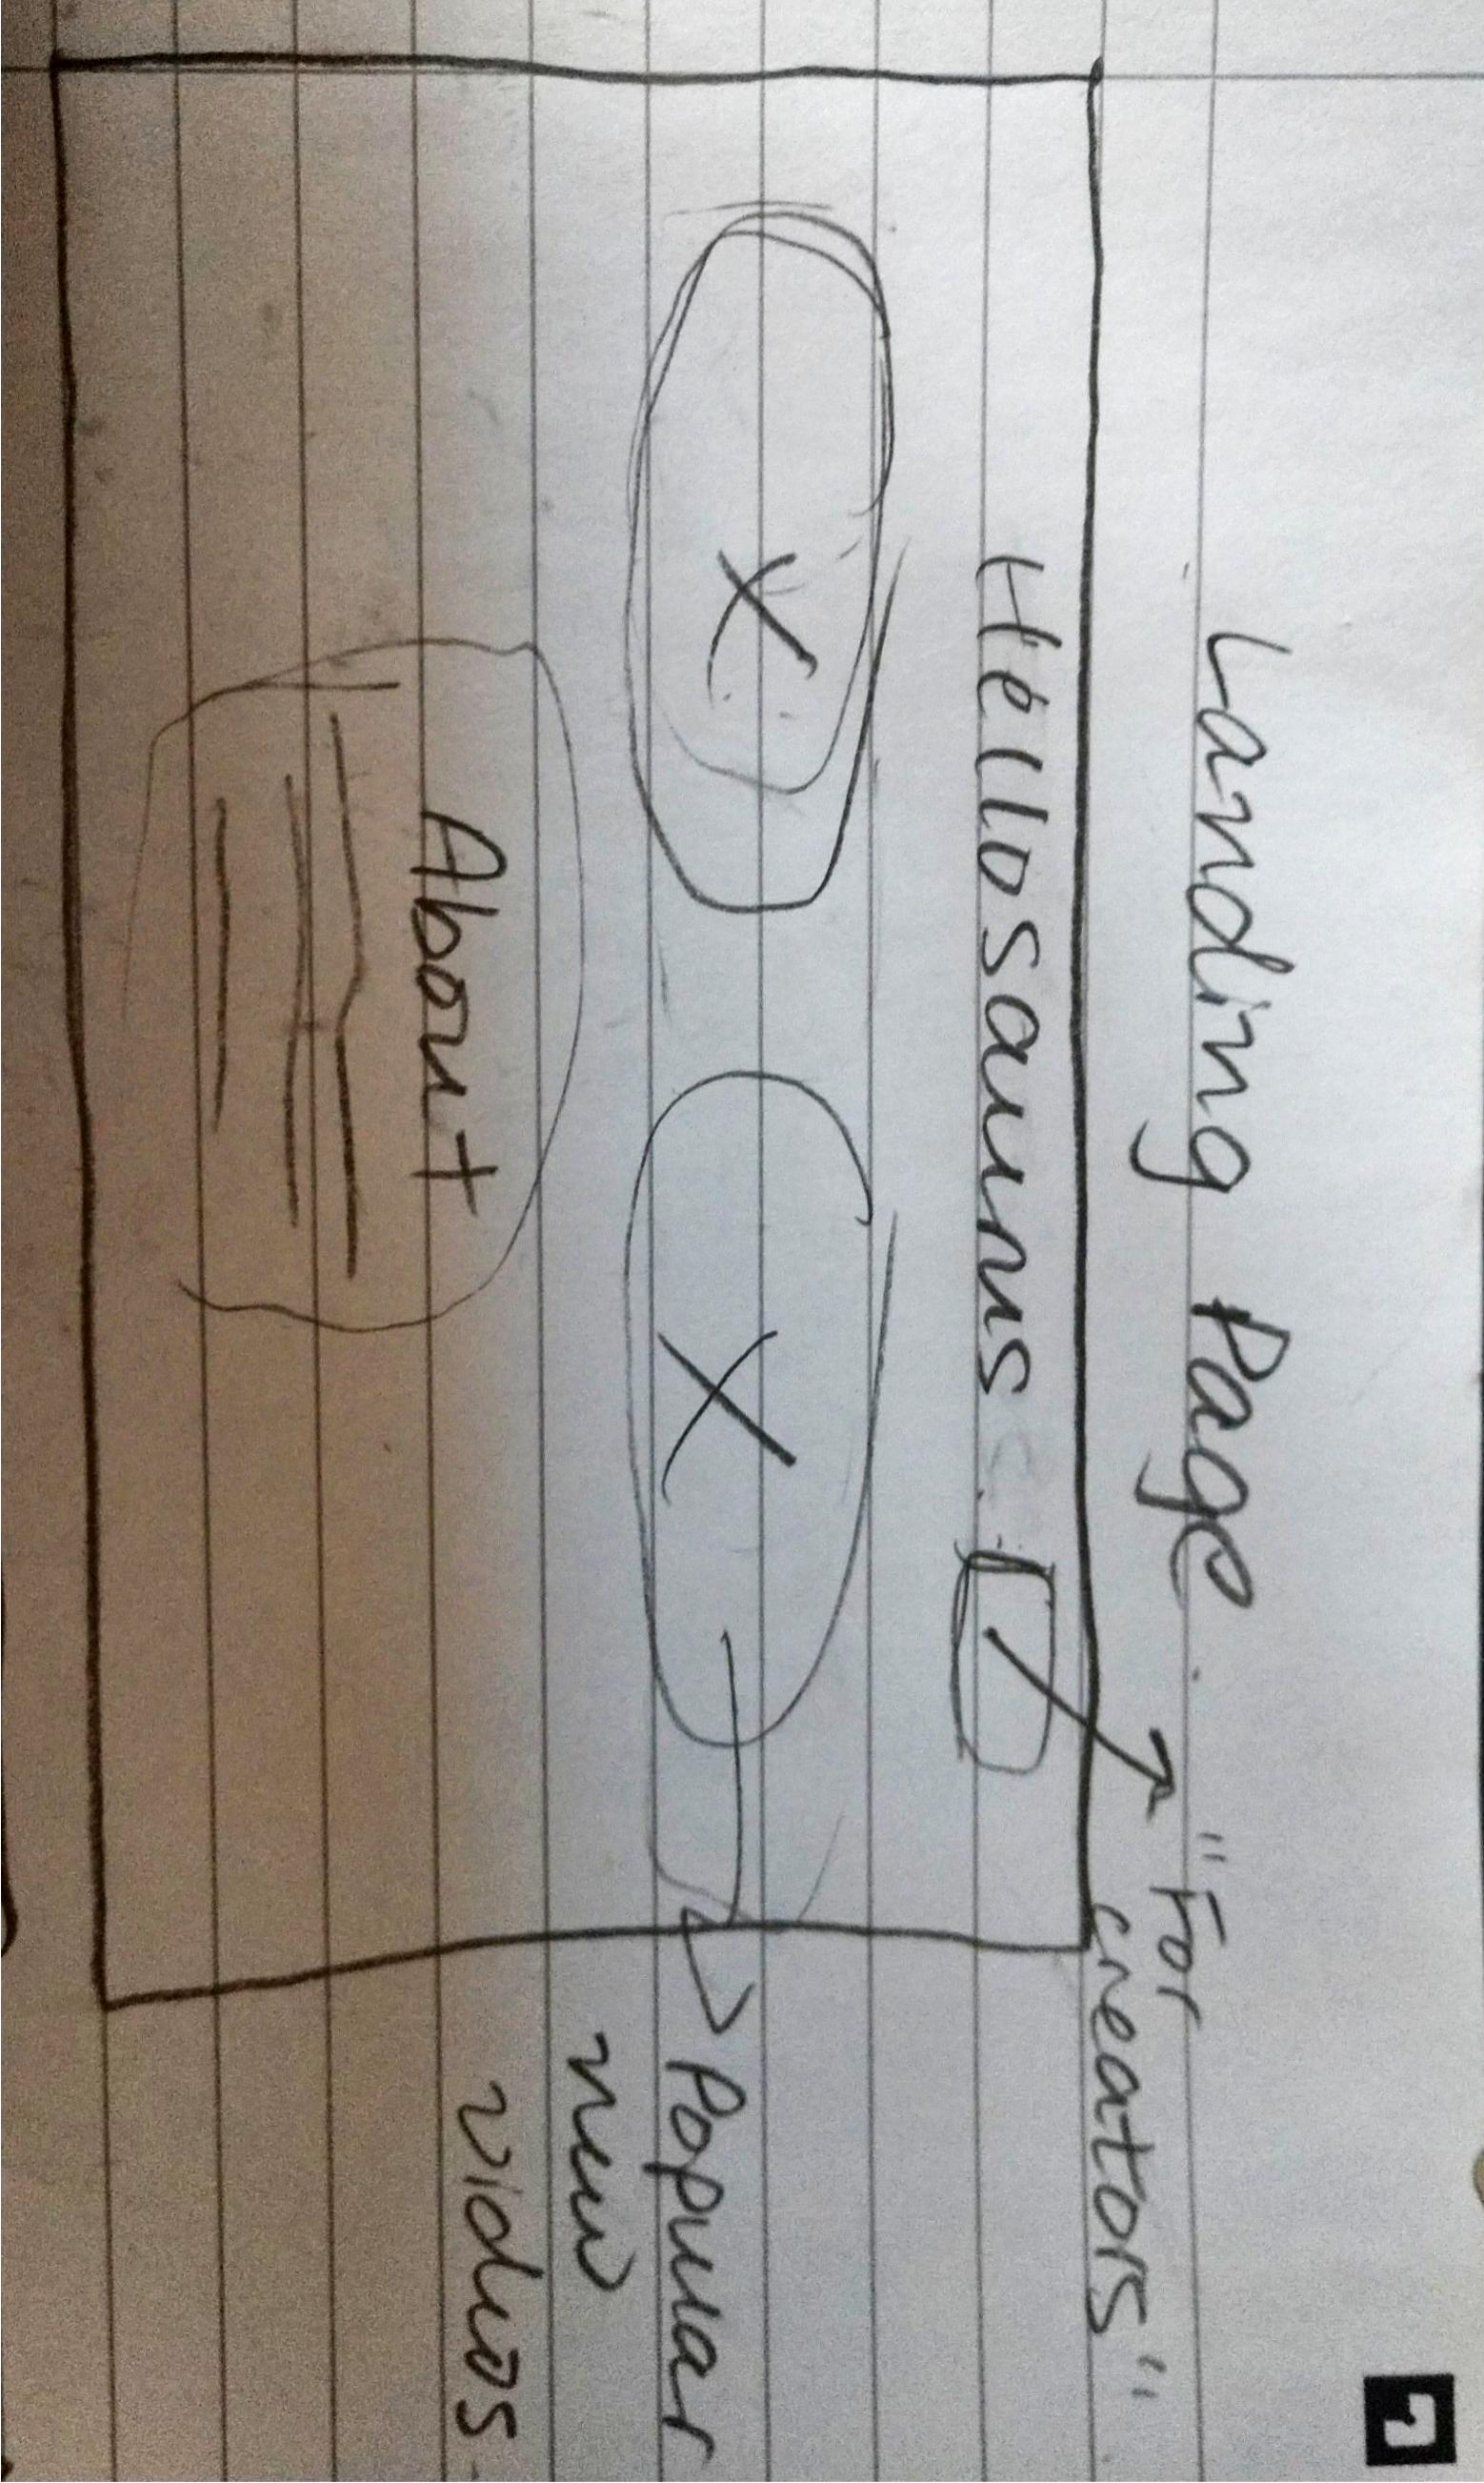 Landing Page
"For
creators"
Hellosaurus
X
X
Popular
new
videos
About